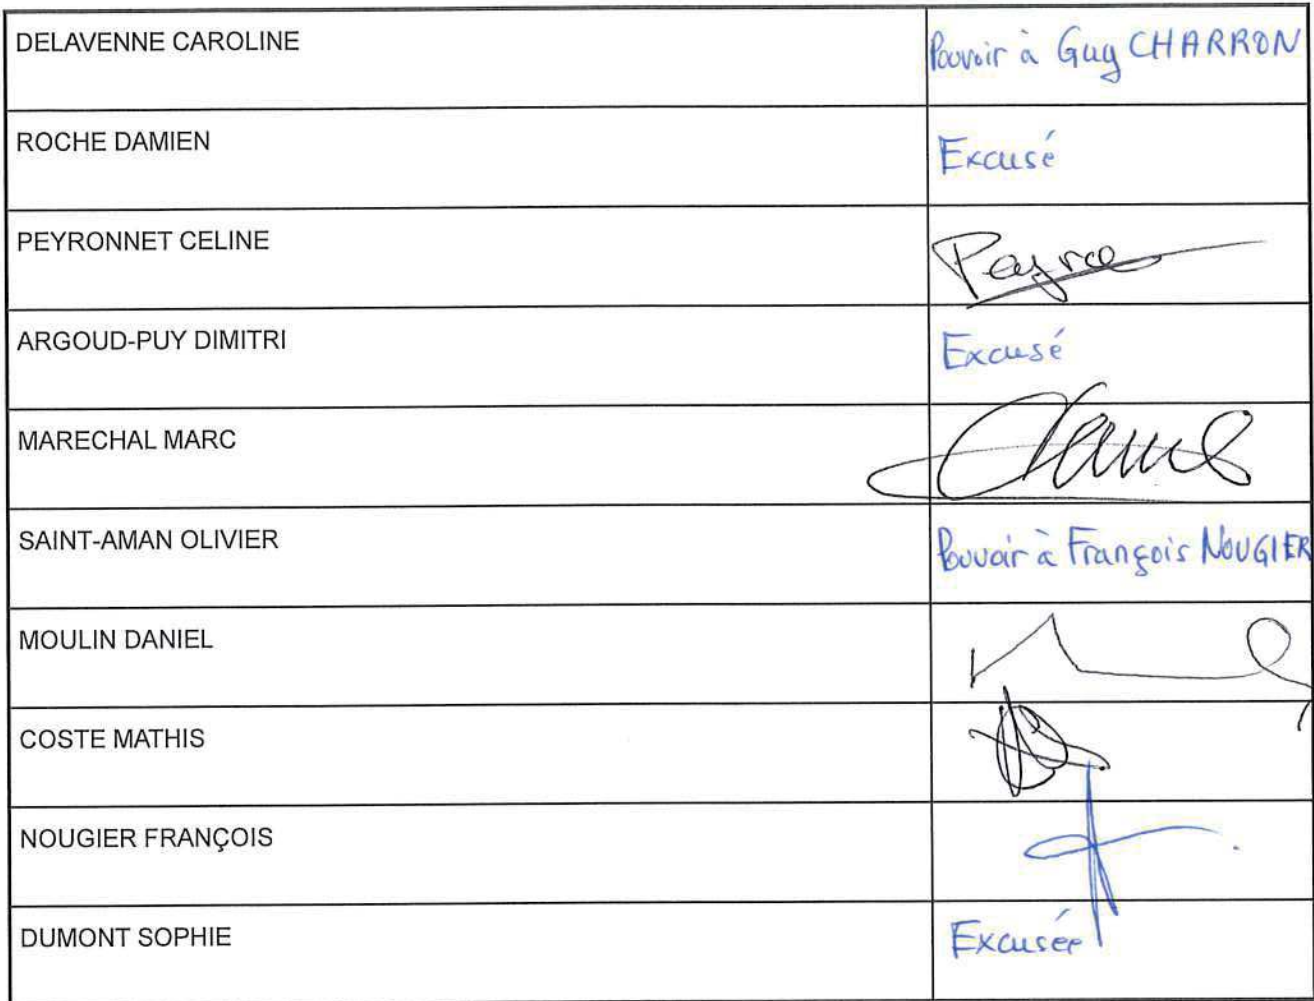 DELAVENNE CAROLINE Pouvoir à Guy CHARRON
ROCHE DAMIEN Excusé
PEYRONNET CELINE Peyro
ARGOUD-PUY DIMITRI Excusé
MARECHAL MARC
SAINT-AMAN OLIVIER Pouvoir à François NOUGIER
MOULIN DANIEL
COSTE MATHIS
NOUGIER FRANÇOIS
DUMONT SOPHIE Excusée